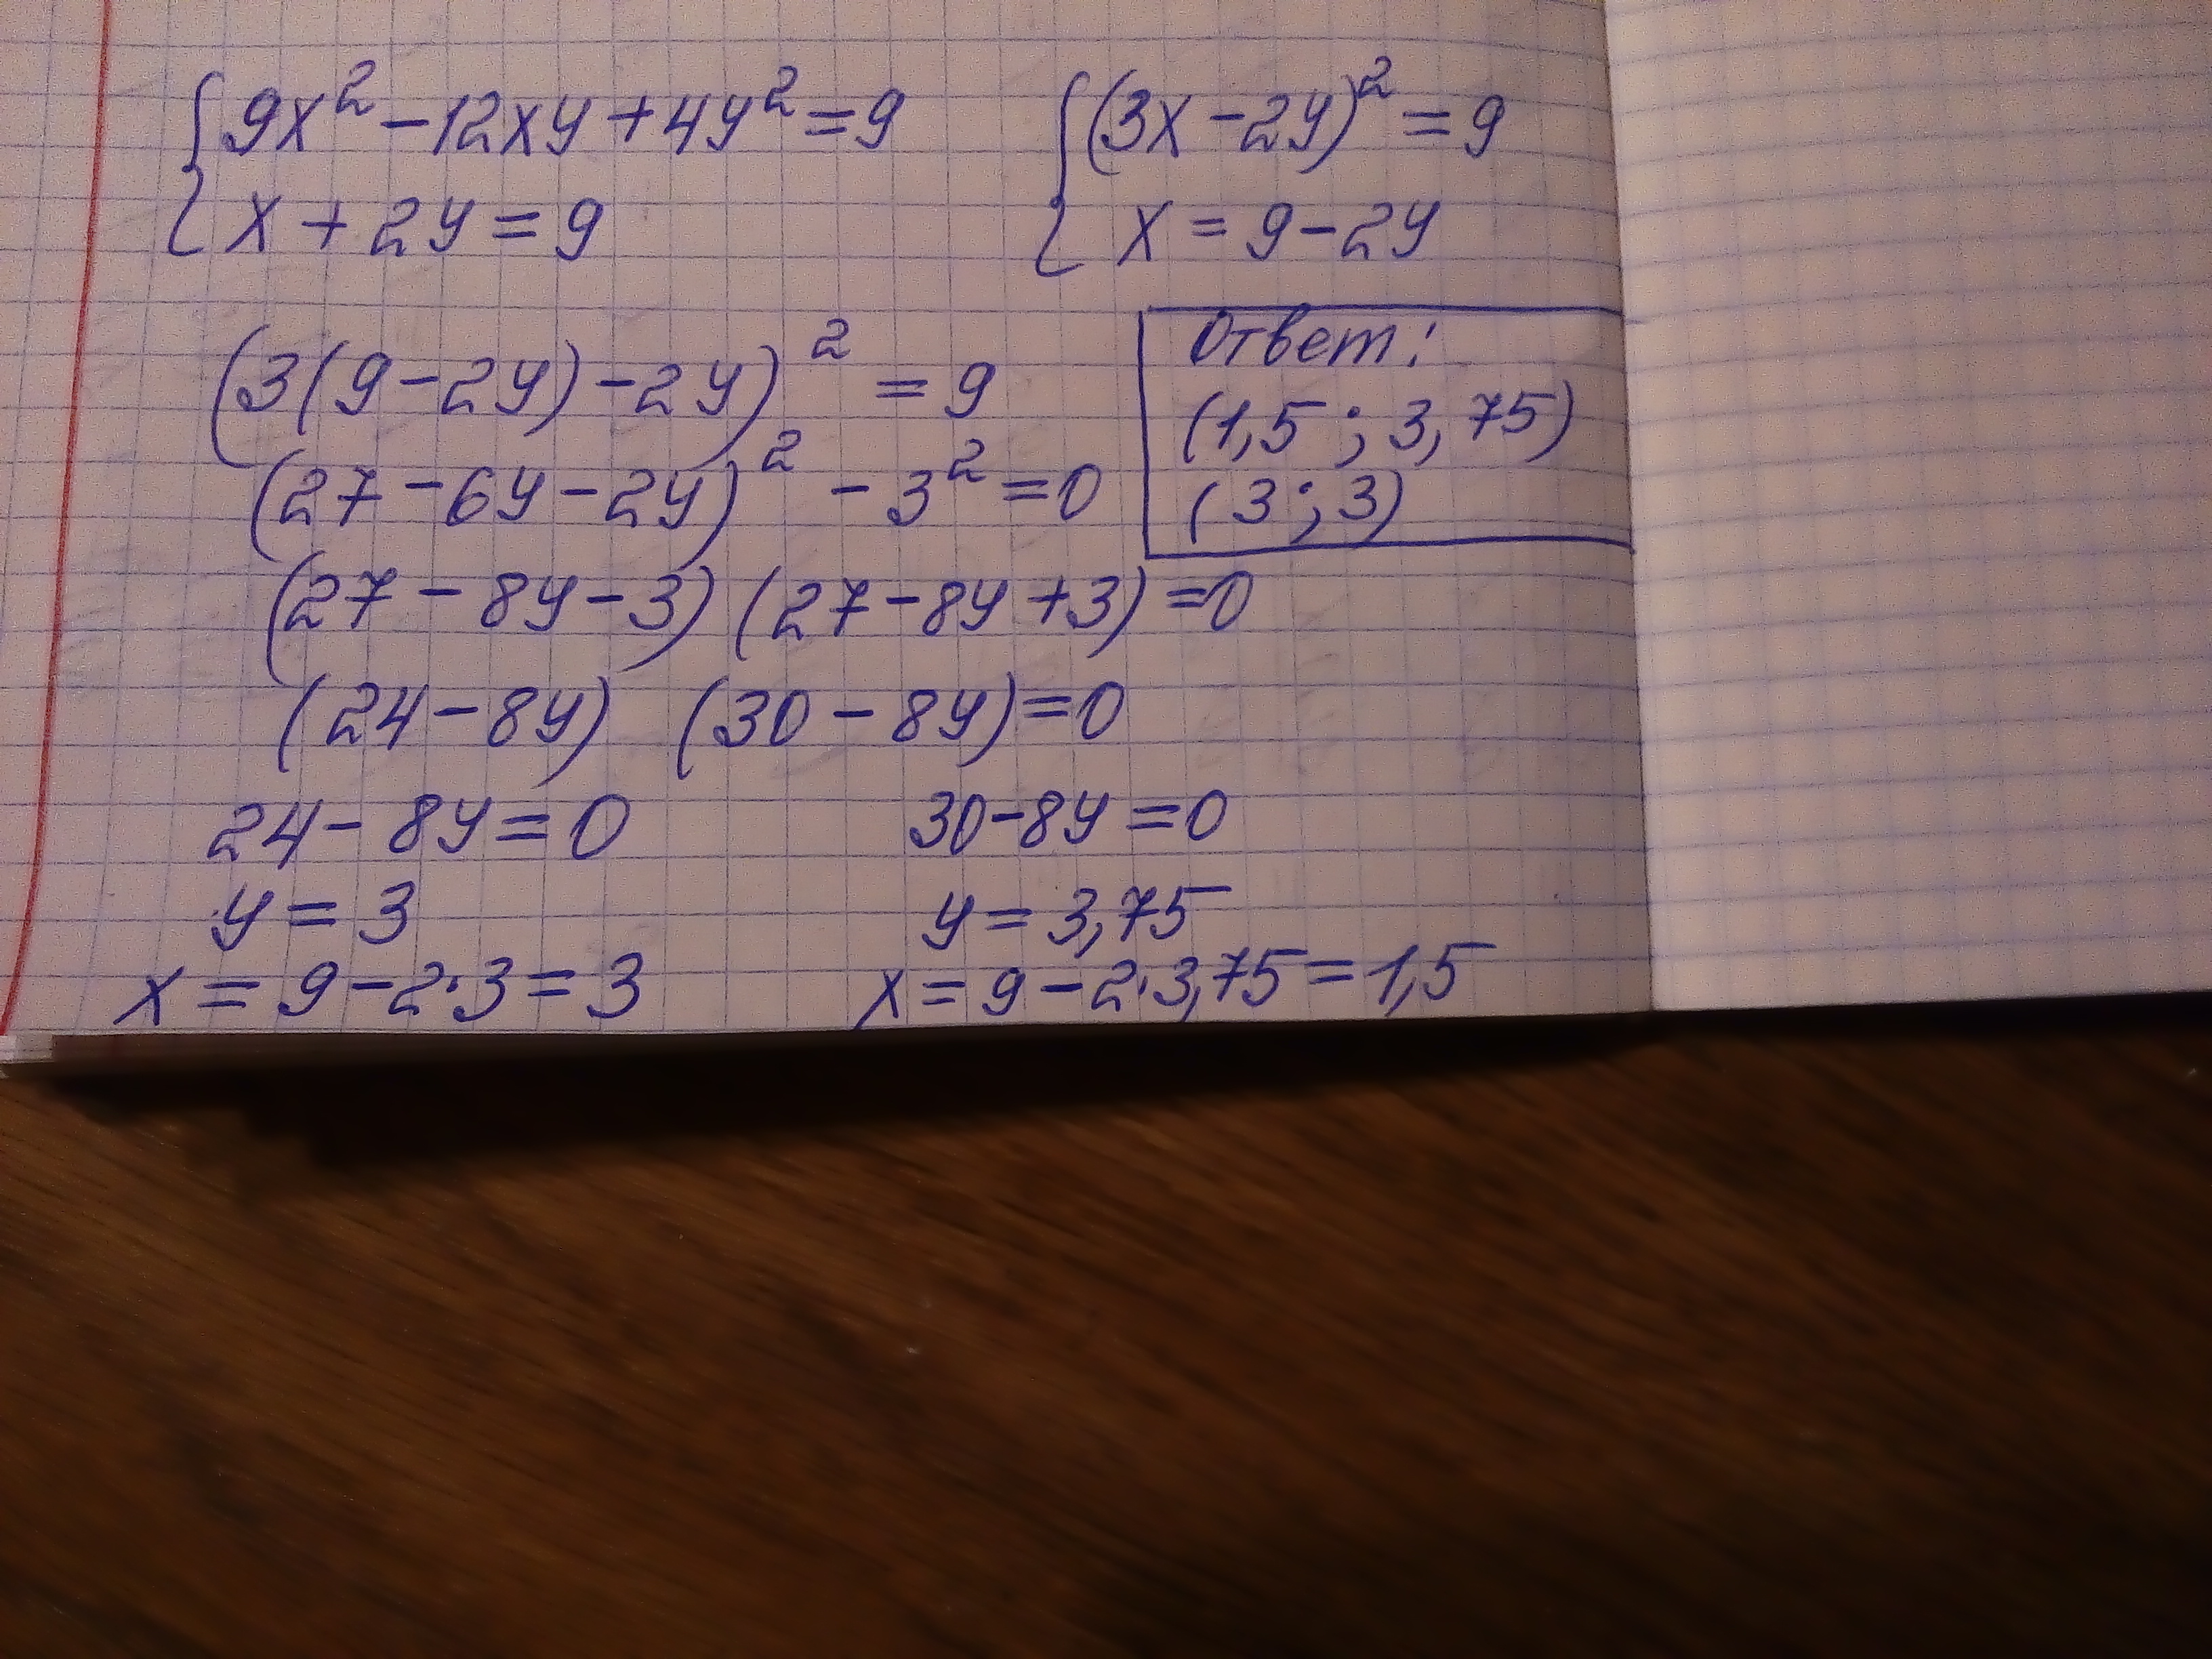 { 9x² - 12xy + 4y² = 9
{ x + 2y = 9
{ (3x - 2y)² = 9
{ x = 9 - 2y
(3(9 - 2y) - 2y)² = 9
(27 - 6y - 2y)² - 3² = 0
(27 - 8y - 3) (27 - 8y + 3) = 0
(24 - 8y) (30 - 8y) = 0
24 - 8y = 0
y = 3
x = 9 - 2·3 = 3
30 - 8y = 0
y = 3,75
x = 9 - 2·3,75 = 1,5
Ответ:
(1,5 ; 3,75)
(3 ; 3)